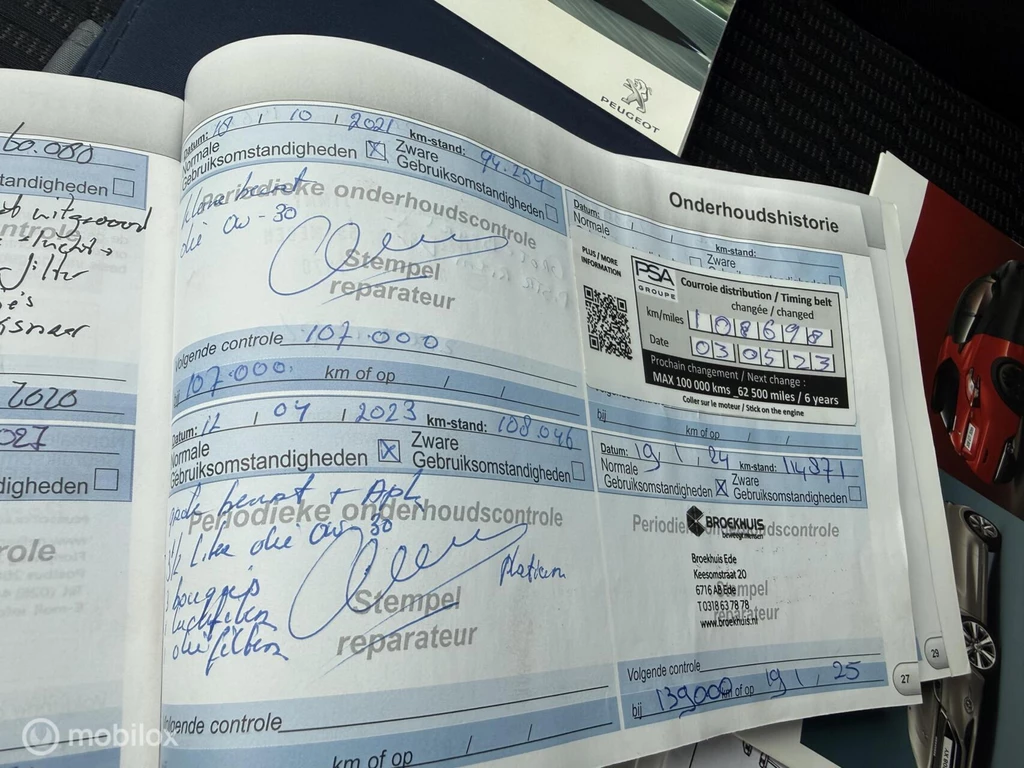 PEUGEOT
60.080
standigheden
uitgevoerd
filter
2020
027
digheden
role
Datum: 18 / 10 / 2021 km-stand: 94.259
Normale Gebruiksomstandigheden Zware Gebruiksomstandigheden
Periodieke onderhoudscontrole
beurt
olie 0W-30
Stempel
reparateur
Volgende controle 107.000
107.000. km of op / /
Datum: 12 / 04 / 2023 km-stand: 108.046
Normale Gebruiksomstandigheden Zware Gebruiksomstandigheden
beurt + APK
Periodieke onderhoudscontrole
olie 0W 30
bougies
Platten
luchtfilter
oliefilter
Stempel
reparateur
lgende controle
km of op / /
Onderhoudshistorie
Datum: / / km-stand:
Normale Zware
PLUS / MORE
INFORMATION
PSA
GROUPE
Courroie distribution / Timing belt
changée / changed
km/miles 108698
Date 030523
Prochain changement / Next change :
MAX 100 000 kms _62 500 miles / 6 years
Coller sur le moteur / Stick on the engine
bij km of op / /
Datum: 19 / 1 / 24 km-stand: 114871
Normale Gebruiksomstandigheden Zware Gebruiksomstandigheden
Periodieke onderhoudscontrole
BROEKHUIS
beweegt mensen
Broekhuis Ede
Keesomstraat 20
6716 AB Ede
T 0318 63 78 78
www.broekhuis.nl
Stempel
reparateur
Volgende controle
bij 139000 km of op 19 / 1 / 25
27
29
mobilox